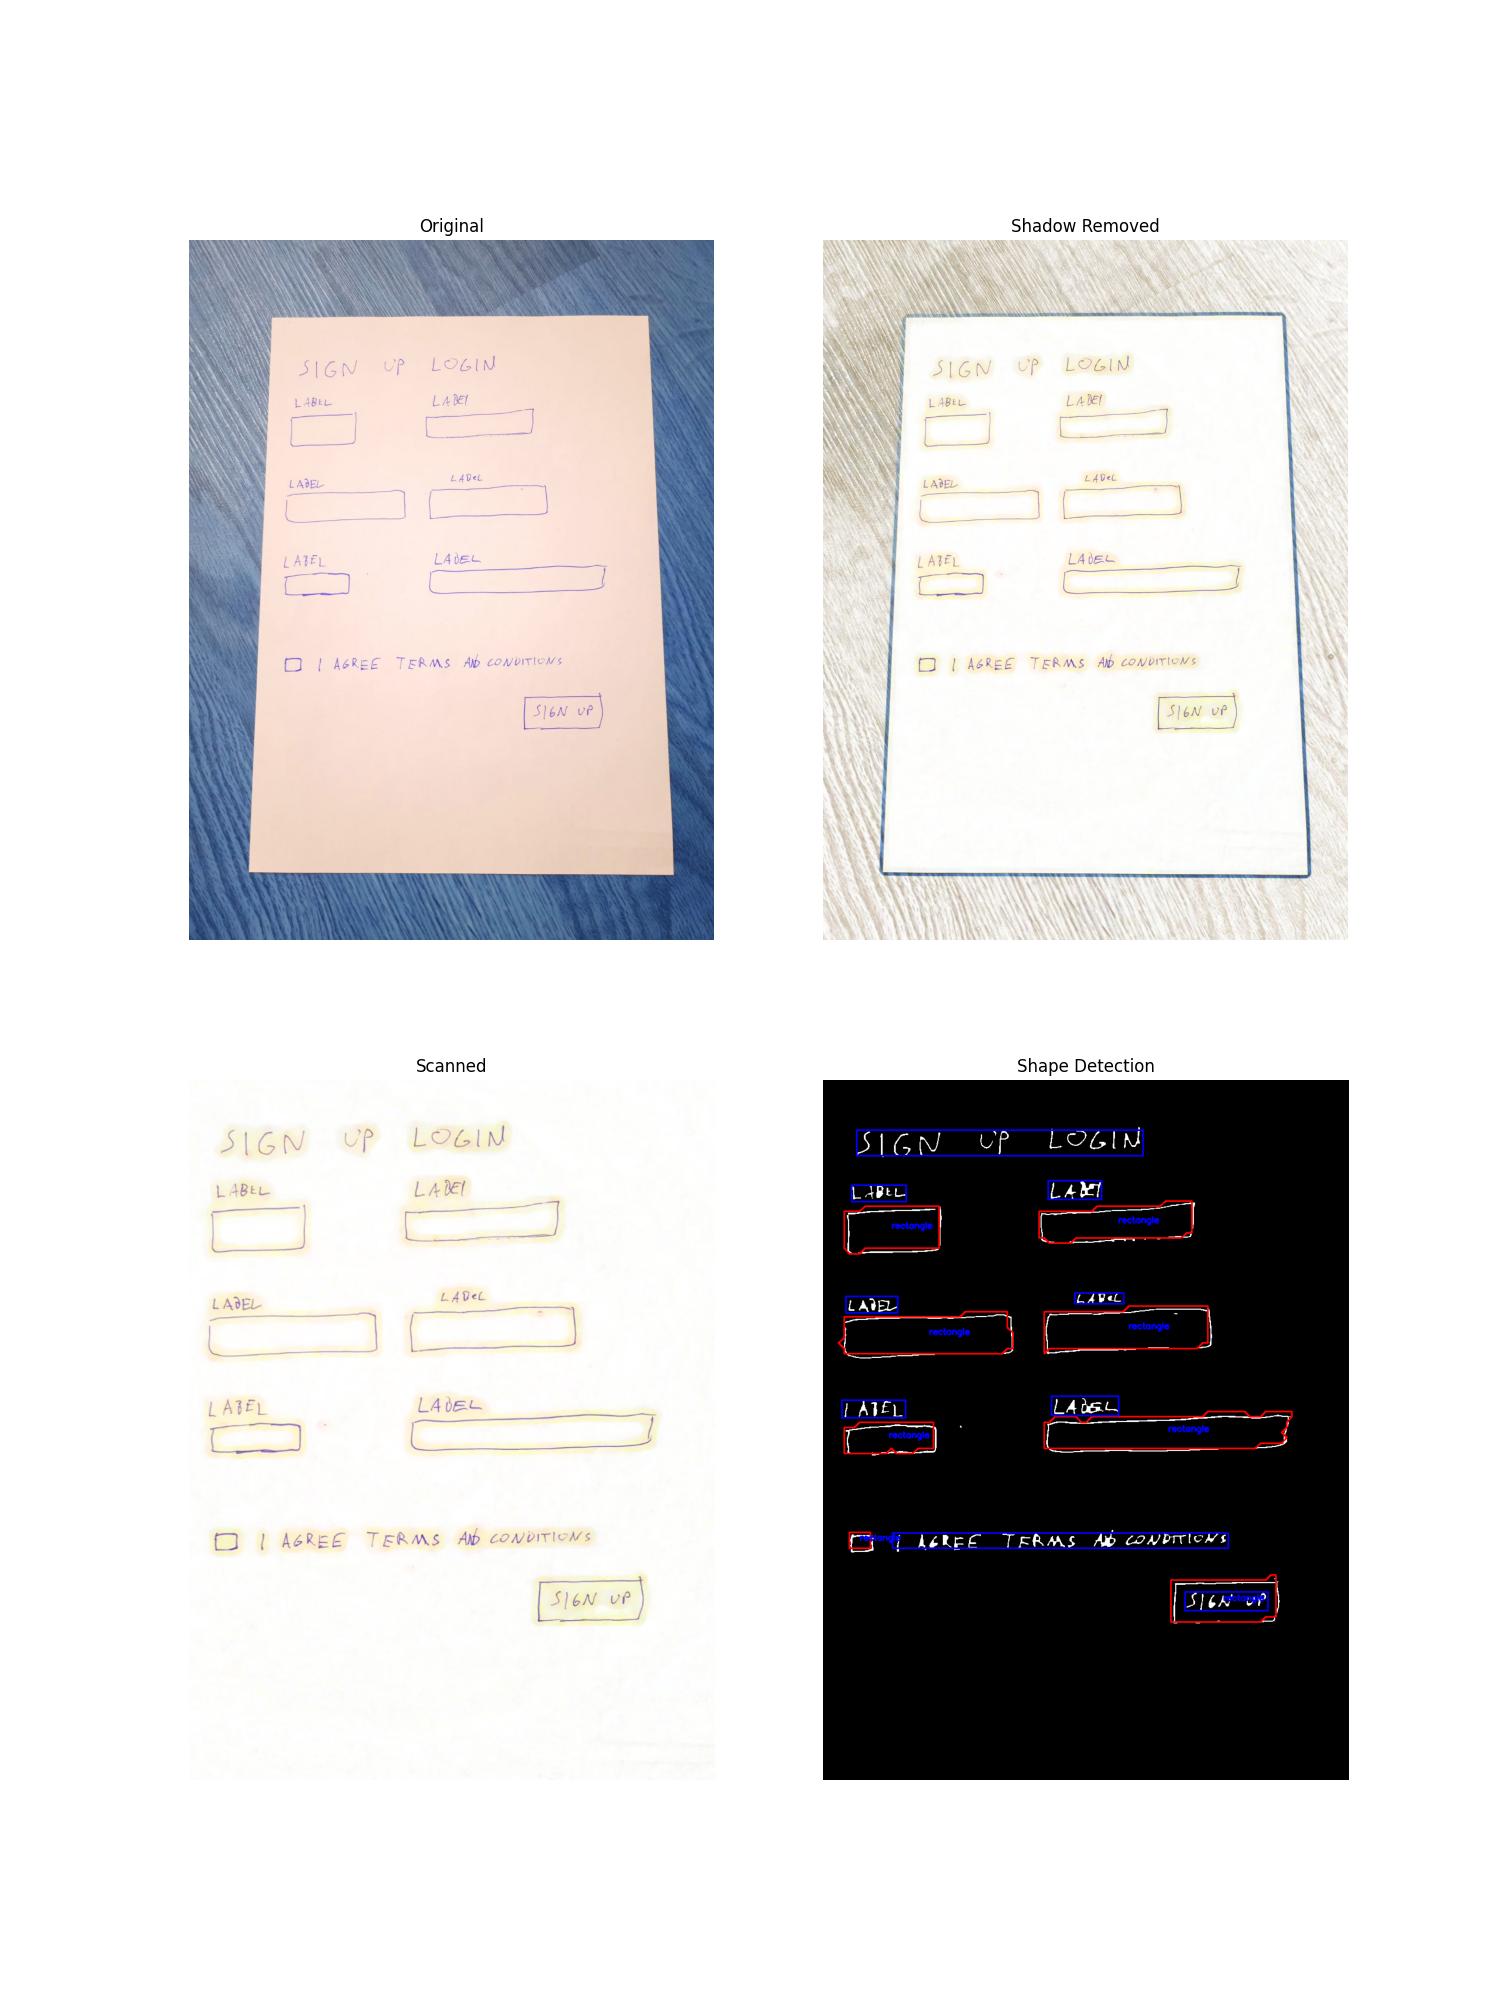 Original
SIGN UP LOGIN
LABEL LABEl
LABEL LABeL
LABEL LABEL
I AGREE TERMS AND CONDITIONS
SIGN UP
Shadow Removed
SIGN UP LOGIN
LABEL LABEl
LABEL LABeL
LABEL LABEL
I AGREE TERMS AND CONDITIONS
SIGN UP
Scanned
SIGN UP LOGIN
LABEL LABEl
LABEL LABeL
LABEL LABEL
I AGREE TERMS AND CONDITIONS
SIGN UP
Shape Detection
SIGN UP LOGIN
LABEL LABEl
rectangle rectangle
LABEL LABeL
rectangle rectangle
LABEL LABEL
rectangle rectangle
rectangle I AGREE TERMS AND CONDITIONS
SIGN UP
rectangle